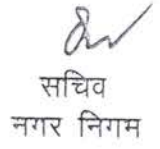 सचिव
नगर निगम